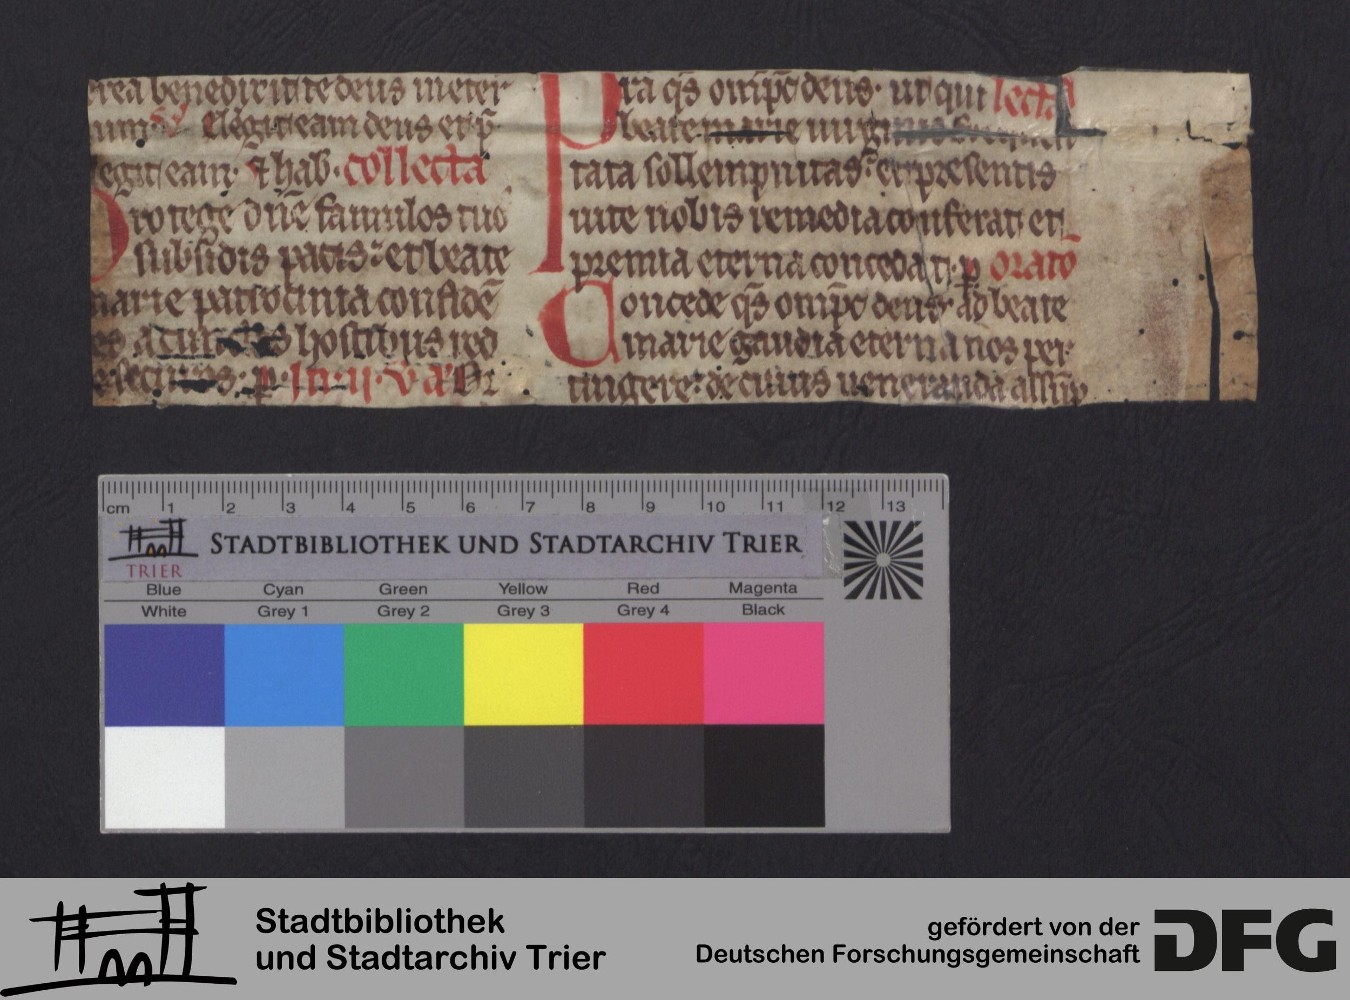 rea benedixit te deus in eter
num. V Elegit eam deus et p̄
elegit eam. & hab. collecta
Protege dn̄e famulos tuo
subsidiis pacis: et beate
marie patrocinia confidē
a cunctis hostibus red
p. In. ij. v. a.
Pra qs̄ omp̄c deus. ut qui lecta
beate marie uirginis
tata sollempnitas: et presentis
uite nobis remedia conferat. et
premia eterna concedat. p oratō
Concede qs̄ omp̄c deus. ad beate
marie gaudia eterna nos per
tingere: de cuius ueneranda assūp
cm 1 2 3 4 5 6 7 8 9 10 11 12 13
TRIER STADTBIBLIOTHEK UND STADTARCHIV TRIER
Blue Cyan Green Yellow Red Magenta
White Grey 1 Grey 2 Grey 3 Grey 4 Black
Stadtbibliothek
und Stadtarchiv Trier
gefördert von der
Deutschen Forschungsgemeinschaft
DFG